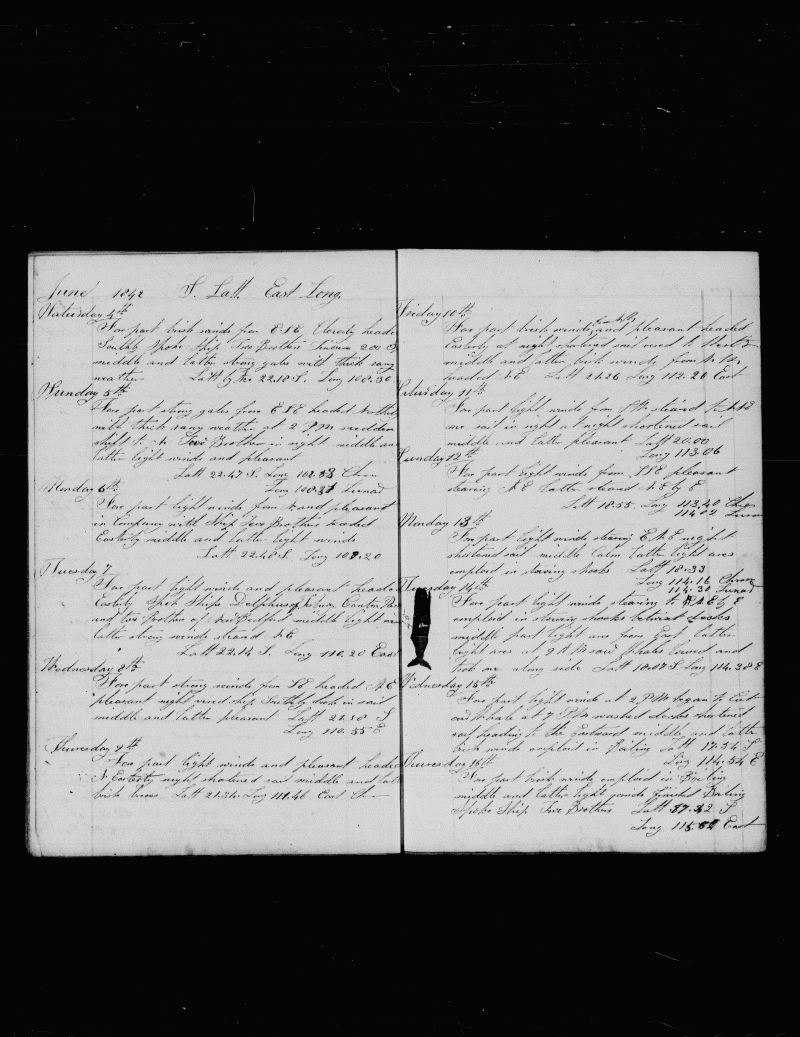 June 1842 S. Latt. East Long.
Saturday 4th
Fore part brisk winds from E.S.E. headed
Southly Spoke Ship Two Brothers 200
middle and latter strong gales with thick rany
weather Latt by 22.18 S. Long 108.30
Sunday 5th
Fore part strong gales from E S E headed
with thick rany weather at 2 P M sudden
shift to Two Brothers in sight middle an
latter light winds and pleasant
Latt 22.47 S. Long 108.33 Chron
Monday 6th Long 108.31 Lunar
Fore part light winds from and pleasant
in Company with Ship Two Brothers headed
Easterly middle and latter light winds
Latt 22.48 S. Long 109.20
Tuesday 7
Fore part light winds and pleasant headed
Easterly Spoke Ships Delphus of Canton
and two Brothers of New Bedford middle light
latter strong winds steard N E
Latt 22.14 S. Long 110.20 East
Wednesday 8th
Fore part strong winds from S E headed N E
pleasant night Southly took in sail
middle and latter pleasant Latt 21.50 S
Long 110.55 E
Thursday 9th
Fore part light winds and pleasant headed
N Easterly night shortened sail middle and latt
brisk Latt 21.34 Long 111.46 East
Friday 10th
Fore part brisk winds and pleasant headed
Easterly at night shortened sail
middle and latter brisk winds from
headed N E Latt 21.26 Long 112.20 East
Saturday 11th
Fore part light winds from steard
sail in sight at night shortened sail
middle and latter pleasant Latt 20.00
Sunday 12th Long 113.06
Fore part light winds from S S E pleasant
stearing N E latter steard N E by E
Latt 18.55 Long 113.40
Monday 13th 114.02
Fore part light winds stearing E N E night
shortened sail middle calm latter light ares
emploid in stowing shooks Latt 18.33
Long 114.16 Chron
Tuesday 14th 114.30 Lunar
Fore part light winds stearing to E by E
emploid in stowing shooks between decks
middle part light ares from East latter
light ares at 9 A M saw whales lowerd and
took one along side Latt 18.07 S Long 114.38 E
Wednesday 15th
Fore part light winds at 2 P M began to Cut
our whale at 7 P M washed decks shortened
sail heading to the Eastward middle and latter
brisk winds emploid in Boiling Latt 17.54 S
Thursday 16th Long 114.54 E
Fore part brisk winds emploid in Boiling
middle and latter light winds finished Boiling
Spoke Ship Two Brothers Latt 17.42 S
Long 115.54 East